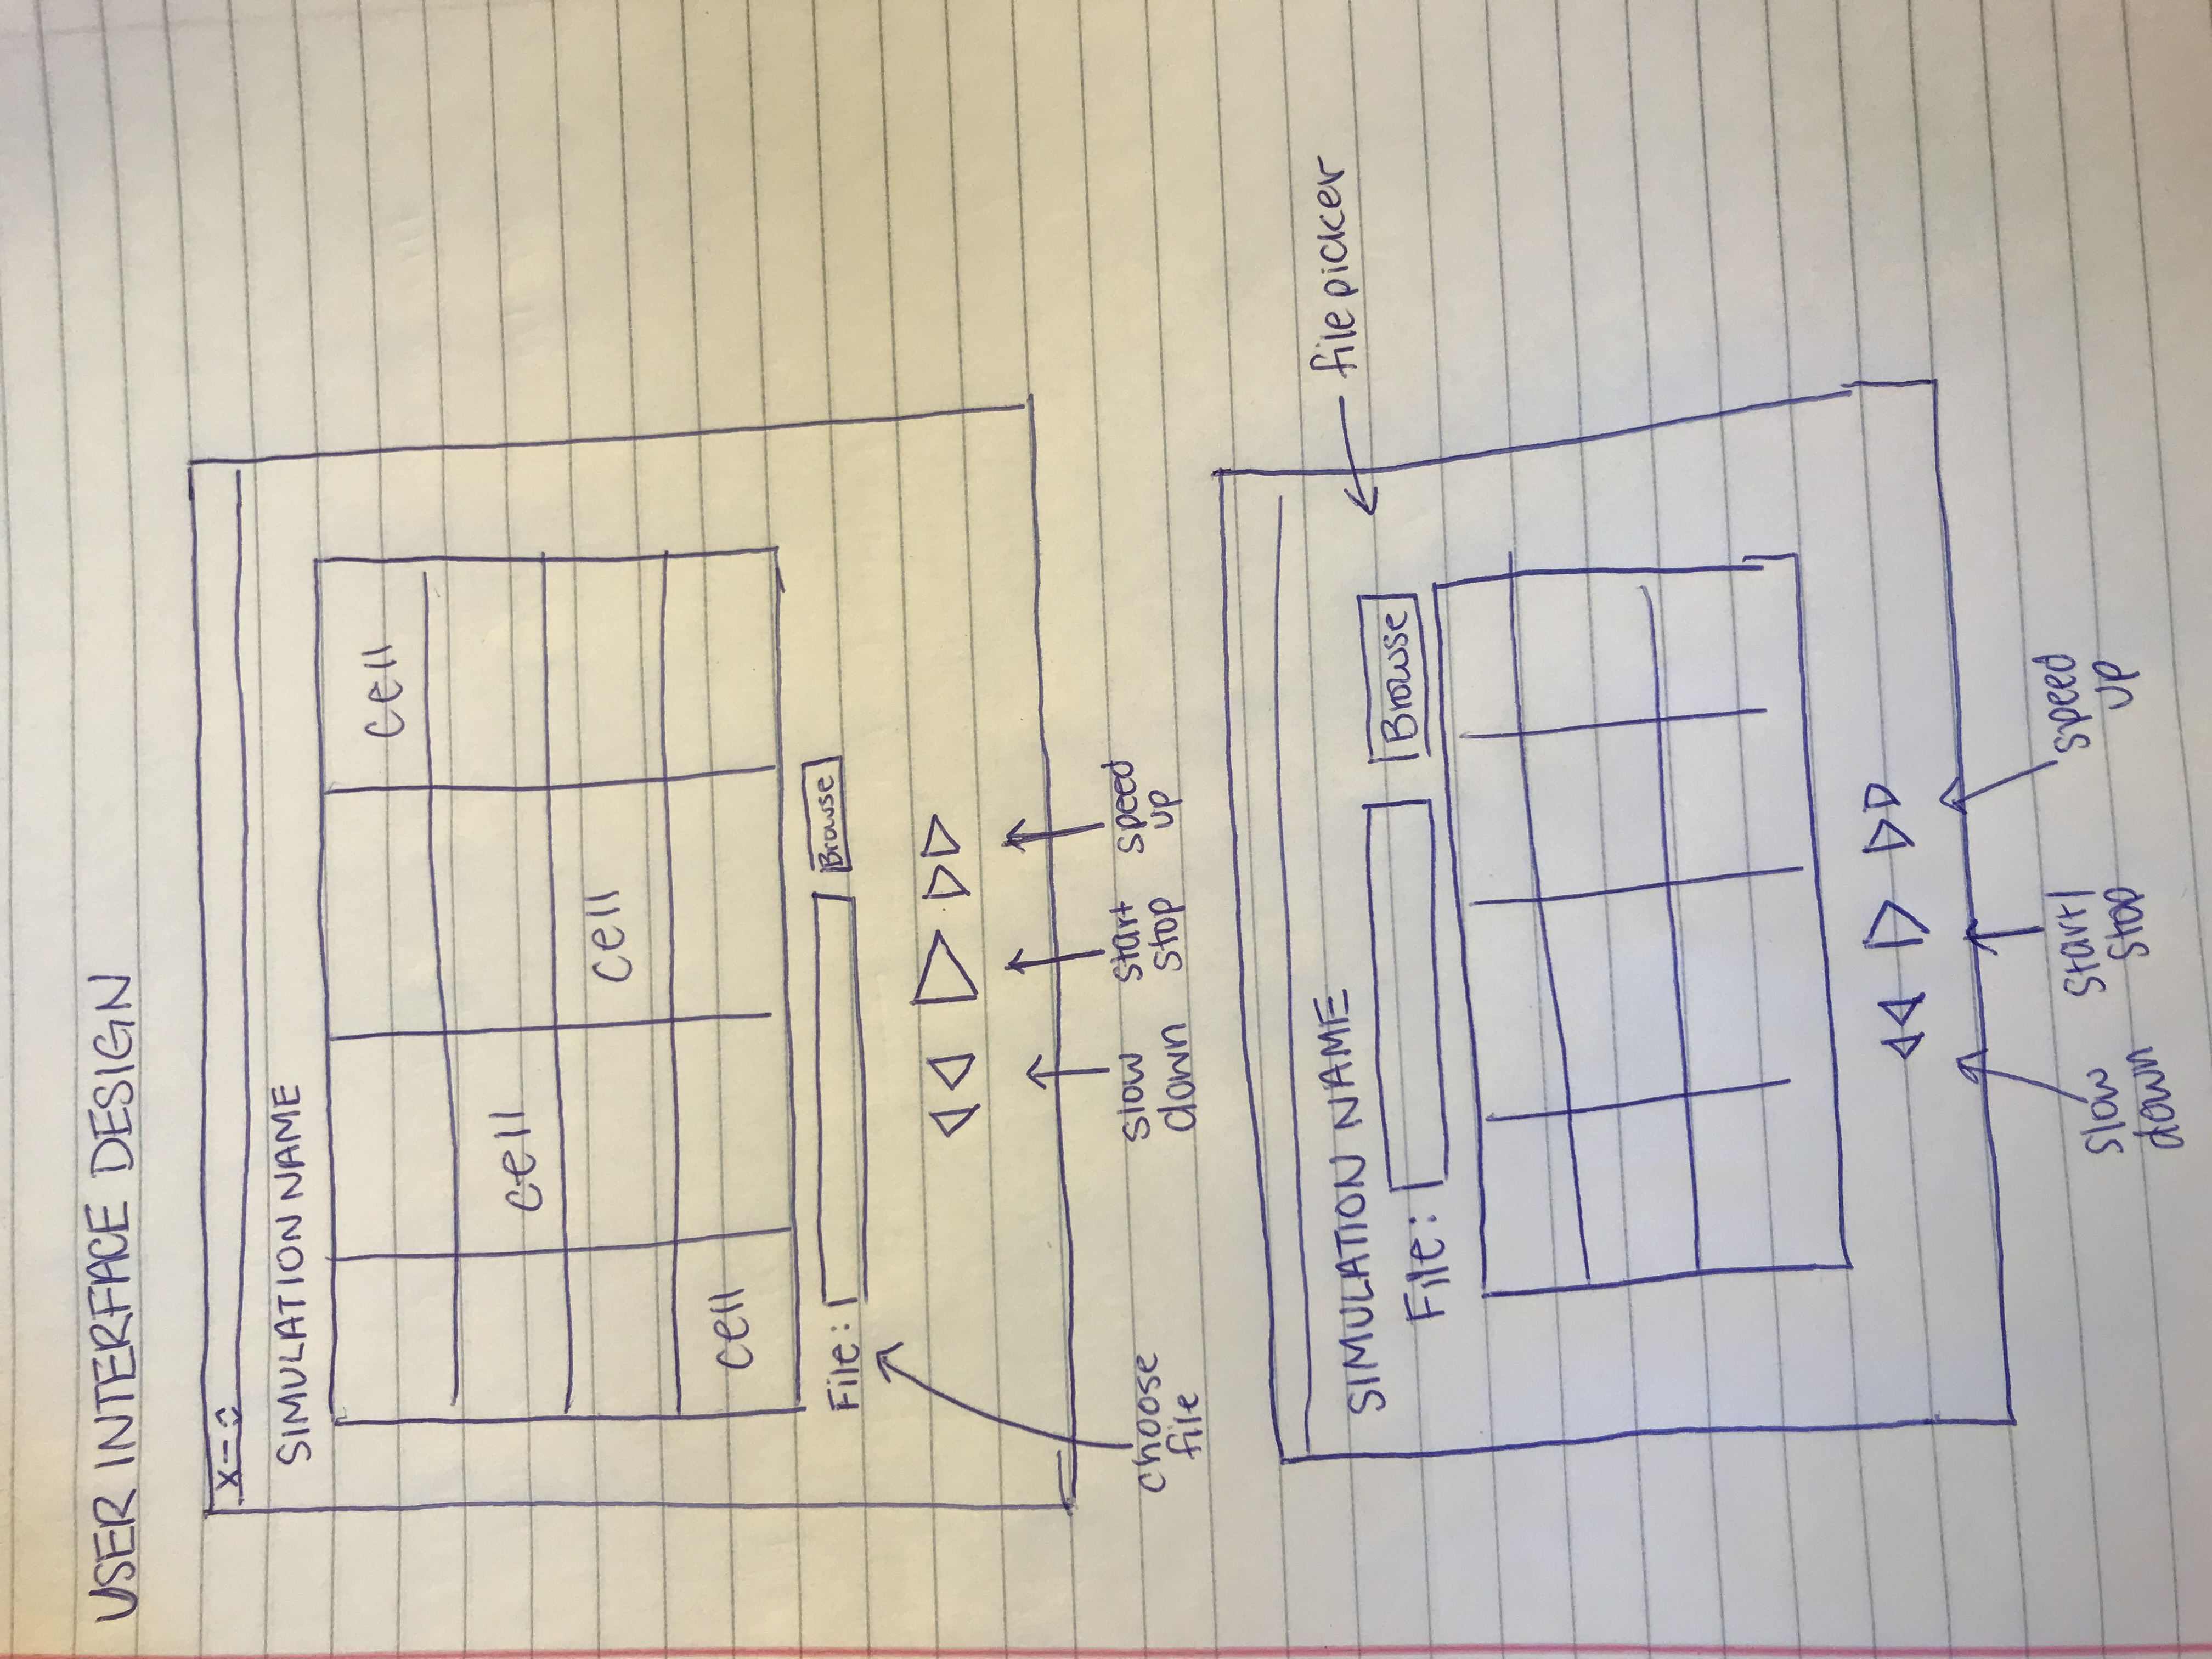 USER INTERFACE DESIGN
X - 
SIMULATION NAME
cell
cell
cell
cell
File:
Browse
choose
file
slow
down
start
stop
speed
up
SIMULATION NAME
file picker
File:
Browse
slow
down
start/
stop
speed
up